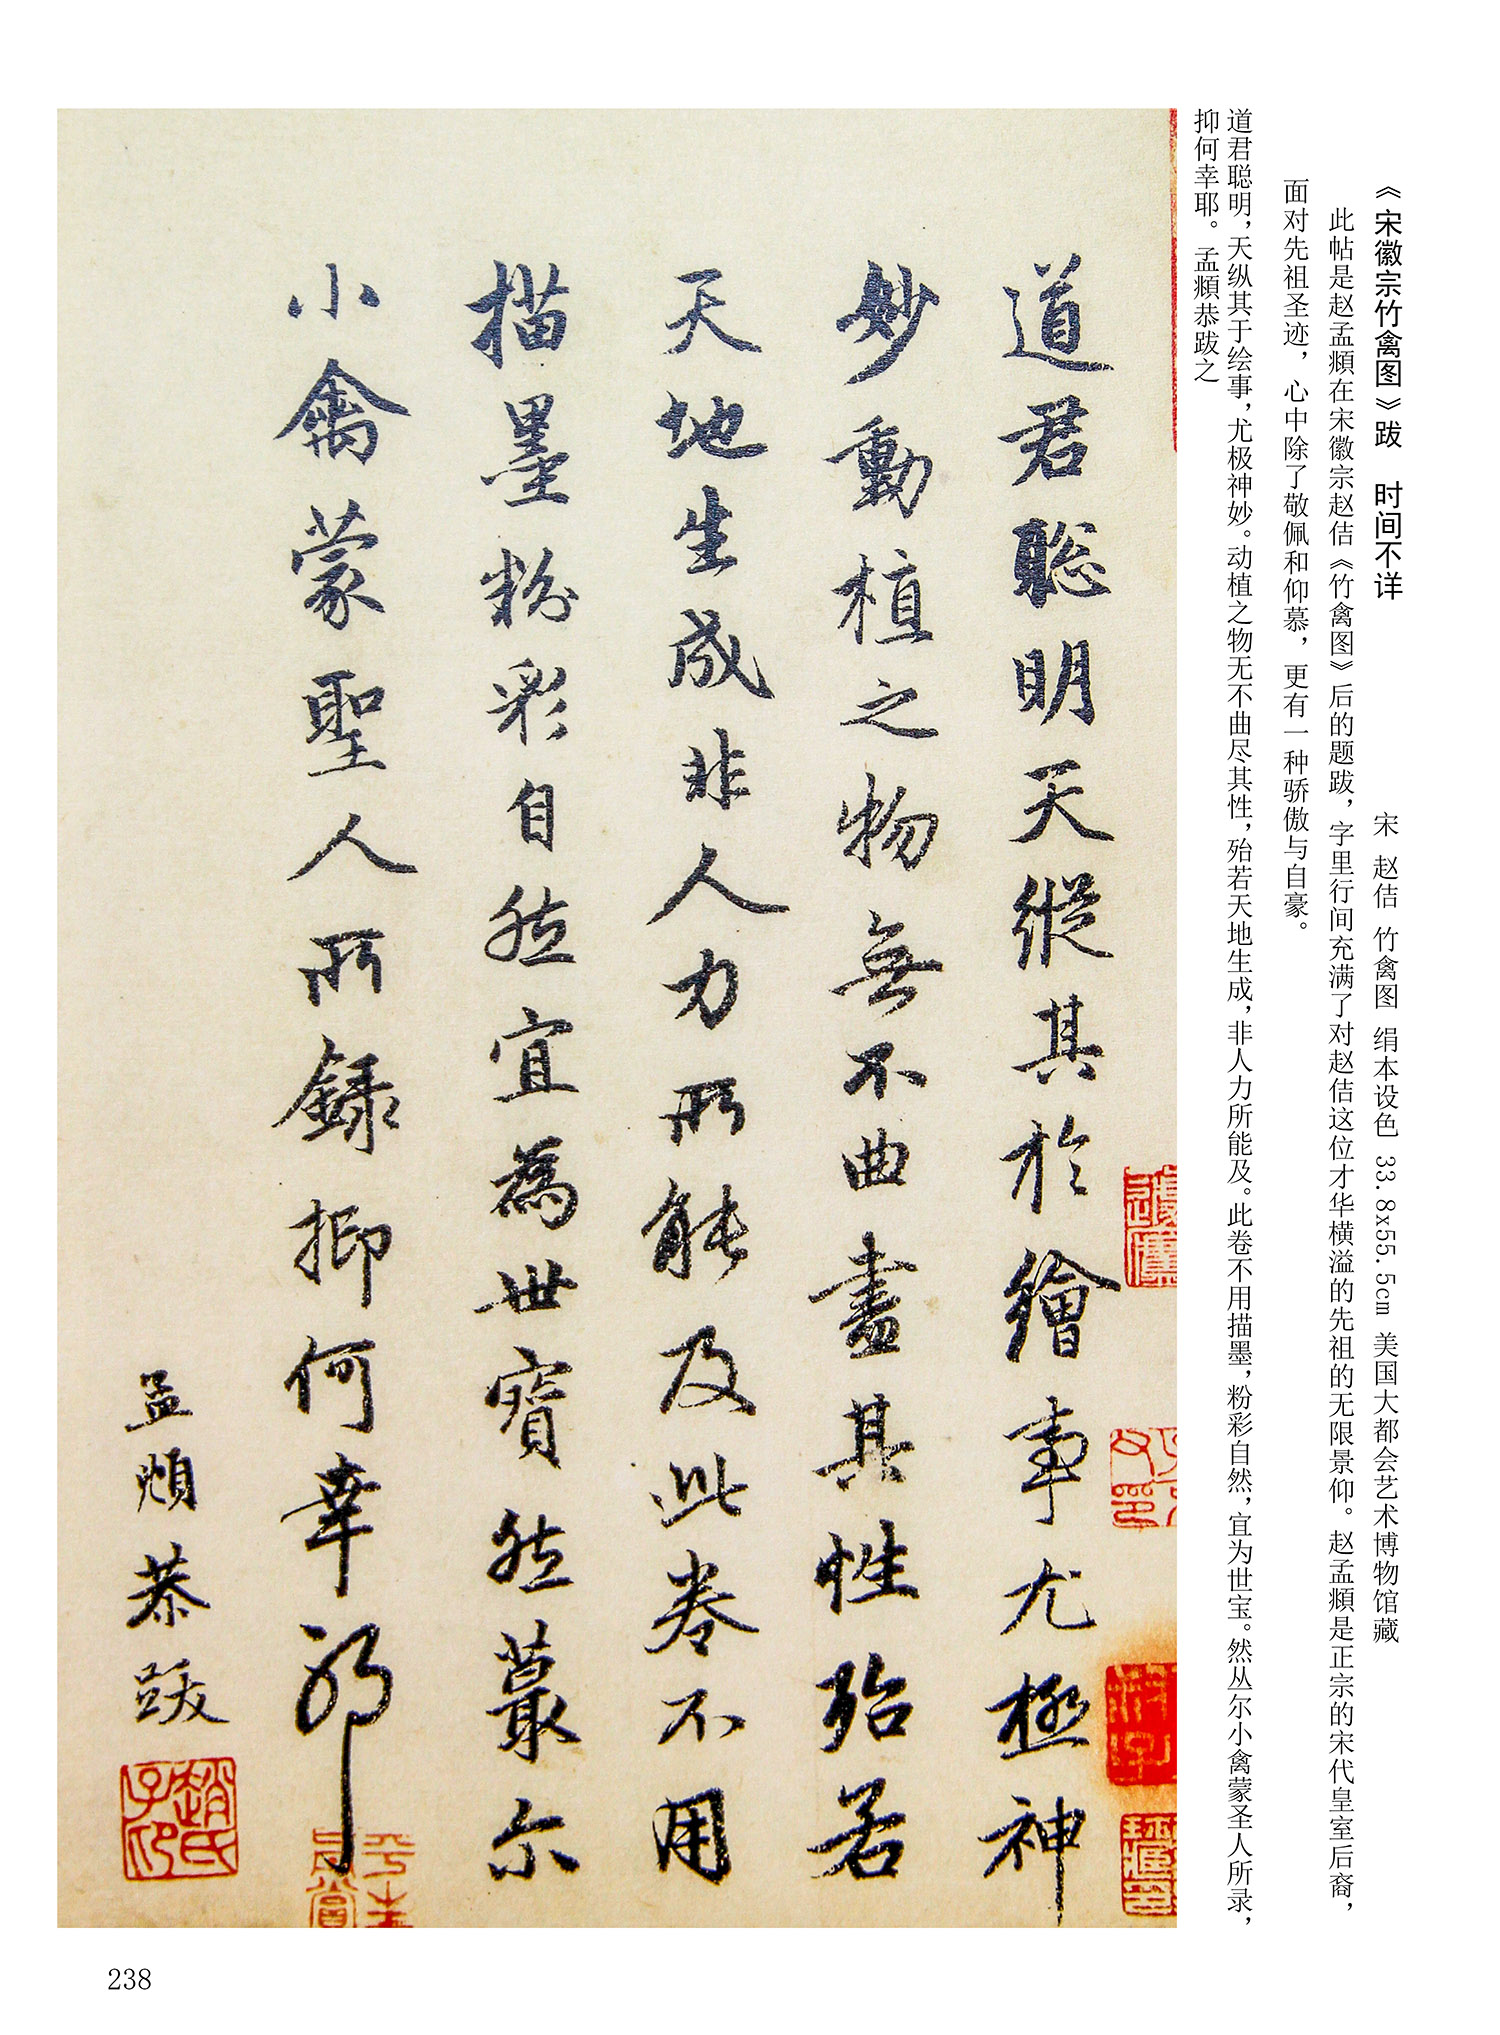 《宋徽宗竹禽图》跋　时间不详　宋 赵佶 竹禽图 绢本设色 33.8x55.5cm 美国大都会艺术博物馆藏
此帖是赵孟頫在宋徽宗赵佶《竹禽图》后的题跋，字里行间充满了对赵佶这位才华横溢的先祖的无限景仰。赵孟頫是正宗的宋代皇室后裔，
面对先祖圣迹，心中除了敬佩和仰慕，更有一种骄傲与自豪。
道君聪明，天纵其于绘事，尤极神妙。动植之物无不曲尽其性，殆若天地生成，非人力所能及。此卷不用描墨，粉彩自然，宜为世宝。然丛尔小禽蒙圣人所录，
抑何幸耶。 孟頫恭跋之
道君聦明天縱其於繪事尤極神
妙動植之物無不曲盡其性殆若
天地生成非人力所能及此卷不用
描墨粉彩自然宜為世寳然蕞尔
小禽蒙聖人所録抑何幸耶
孟頫恭跋
趙氏子卬
238